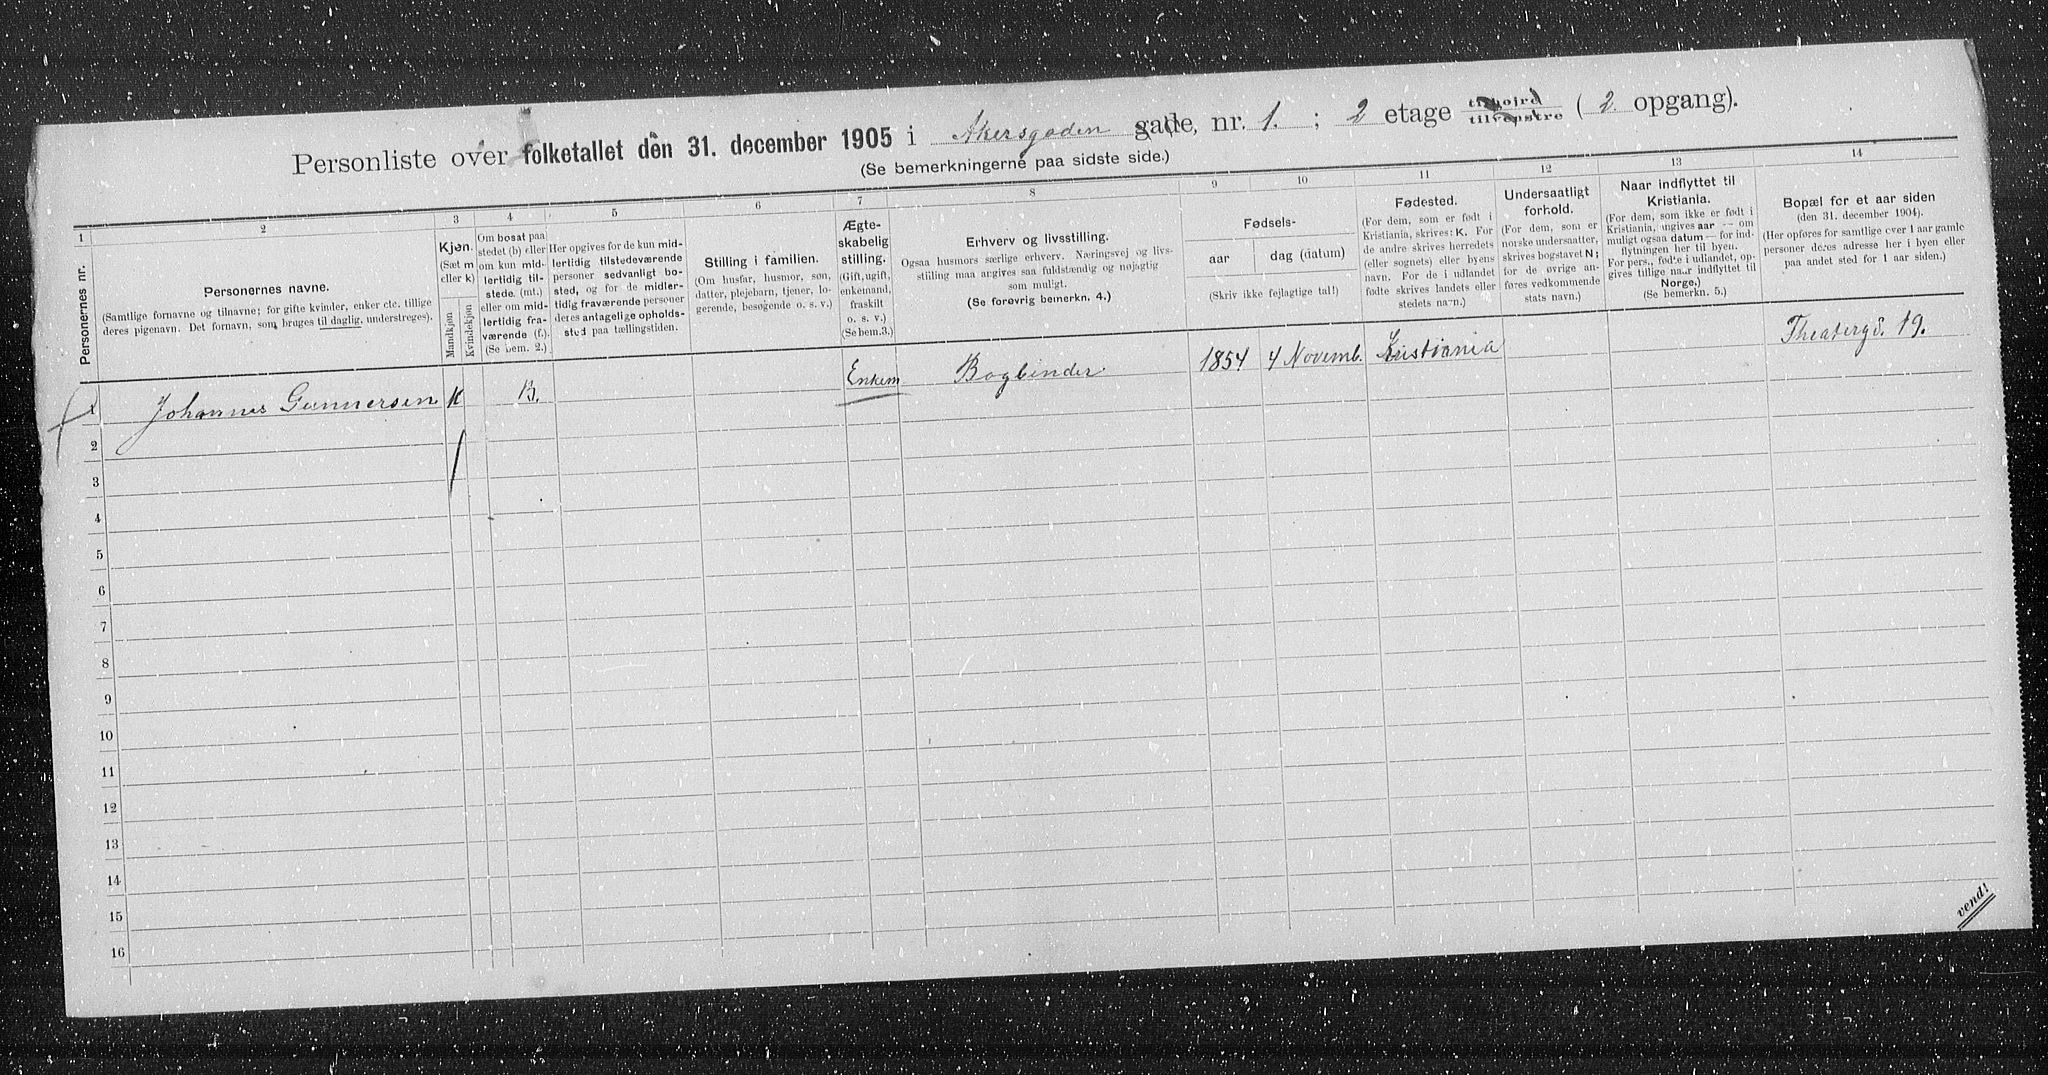 Personliste over folketallet den 31. december 1905 i Akersgaden gade, nr. 1. ; 2 etage tilhøjre tilvenstre ( 2 opgang).
(Se bemerkningerne paa sidste side.)
1 2 3 4 5 6 7 8 9 10 11 12 13 14
Personernes nr.
Personernes navne.
(Samtlige fornavne og tilnavne; for gifte kvinder, enker etc. tillige
deres pigenavn. Det fornavn, som bruges til daglig, understreges).
Kjøn.
(Sæt m
eller k)
Mandkjøn
Kvindekjøn
Om bosat paa
stedet (b) eller
om kun mid-
lertidig til-
stede. (mt.)
eller om mid-
lertidig fra-
værende (f.)
(Se bem. 2.)
Her opgives for de kun mid-
lertidig tilstedeværende
personer sedvanligt bo-
sted, og for de midler-
tidig fraværende personer
deres antagelige opholds-
sted paa tællingstiden.
Stilling i familien.
(Om husfar, husmor, søn,
datter, plejebarn, tjener, lo-
gerende, besøgende o. s. v.)
Ægte-
skabelig
stilling.
(Gift, ugift,
enkemand,
fraskilt
o. s. v.)
(Se bem.3.)
Erhverv og livsstilling.
Ogsaa husmors særlige erhverv. Næringsvej og livs-
stilling maa angives saa fuldstændig og nøjagtig
som muligt.
(Se forøvrig bemerkn. 4.)
Fødsels-
aar dag (datum)
(Skriv ikke fejlagtige tal!)
Fødested.
(For dem, som er født i
Kristiania, skrives: K. For
de andre skrives herredets
(eller sognets) eller byens
navn. For de i udlandet
fødte skrives landets eller
stedets navn.)
Undersaatligt
forhold.
(For dem, som er
norske undersaatter,
skrives bogstavet N;
for de øvrige an-
føres vedkommende
stats navn.)
Naar indflyttet til
Kristiania.
(For dem, som ikke er født i
Kristiania, angives aar — om
muligt ogsaa datum — for ind-
flytningen her til byen.
For pers., fødte i udlandet, op-
gives tillige naar indflyttet til
Norge.)
(Se bemerkn. 5.)
Bopæl for et aar siden
(den 31. december 1904).
(Her opføres for samtlige over 1 aar gamle
personer deres adresse her i byen eller
paa andet sted for 1 aar siden.)
1 Johannes Gunnersen K B. Enkem Bogbinder. 1854 4 Novemb. Kristiania Theatergd. 19.
2
3
4
5
6
7
8
9
10
11
12
13
14
15
16
vend!